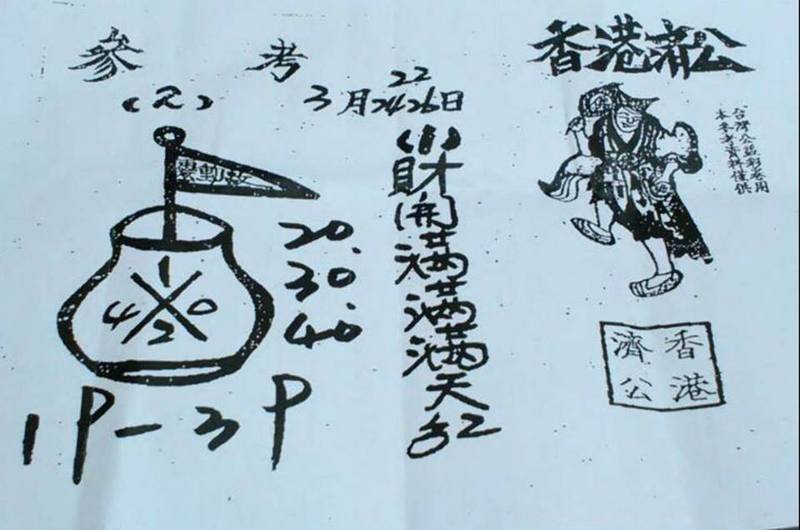 參考
3月22 24 26日
香港濟公
本參考資料僅供
台灣公益彩卷用
財開滿滿滿天紅
1
4 0
2
20.
30.
40.
1P-3P
香港
濟公